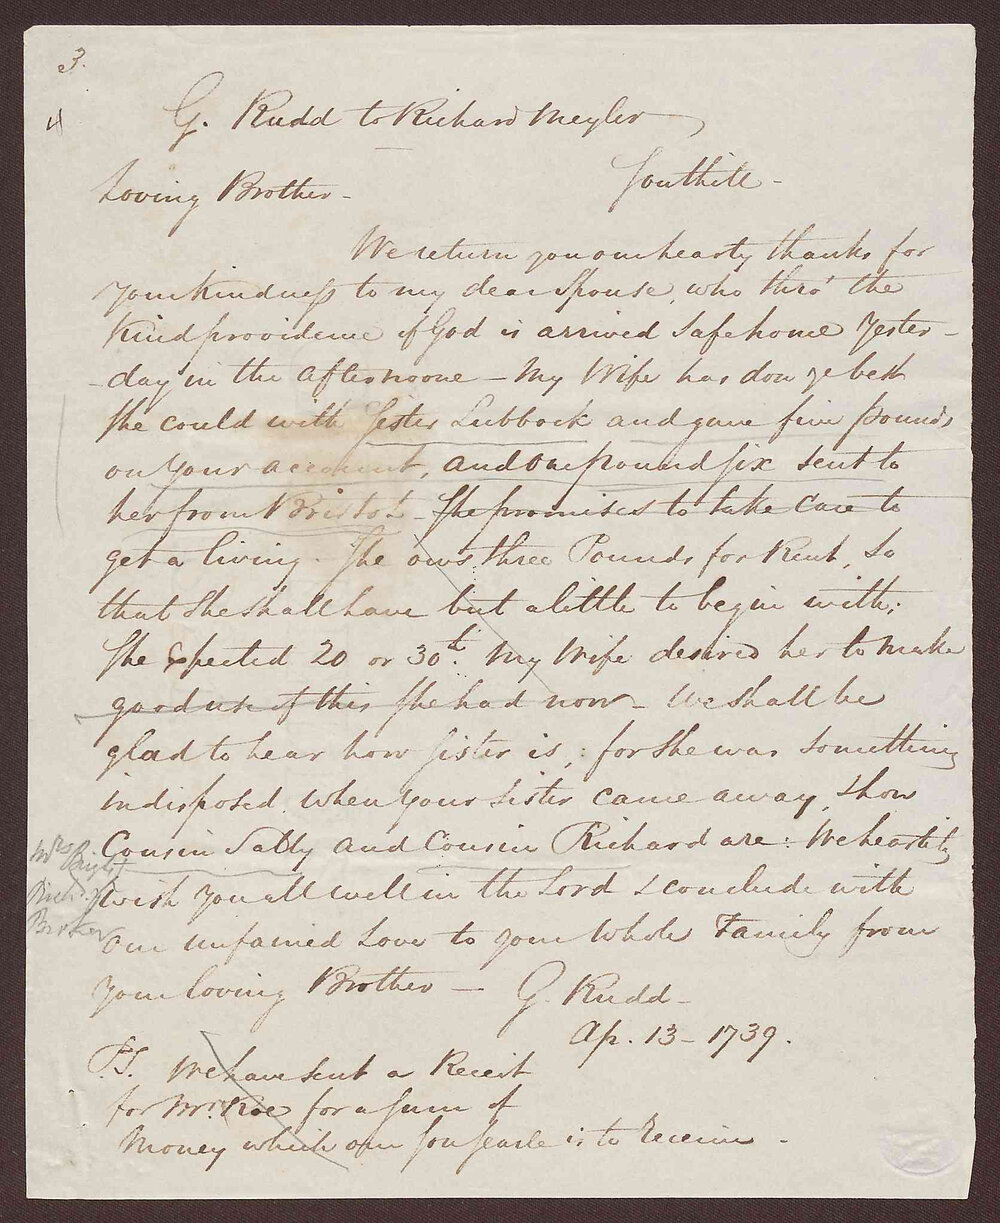 3.
4
G. Rudd to Richard Meyler
Southill -
Loving Brother -
We return you our hearty thanks for
your kindness to my dear Spouse, who thrô the
Kind providence of God is arrived Safe home Yester-
-day in the afternoone - My Wife has don ye best
She could with Sister Lubbock and gave five pounds
on Your account, and One pound six sent to
her from Bristol - She promises to take Care to
get a living. She ows three Pounds for Rent, So
that She shall have but a little to begin with;
She Expected 20 or 30 My Wife desired her to make
good use of this She had now - We shall be
glad to hear how Sister is, for She was Something
indisposed when Your Sister came away, & how
Cousin Sally and Cousin Richard are: We heartily
wish You all well in the Lord & conclude with
Our unfained Love to your whole Family from
Your loving Brother - G. Rudd -
Ap. 13 - 1739.
P.S. We have Sent a Receit
for Mr. Roe for a Sum of
Money which our Son Searle is to Receive -
Mrs
Richd